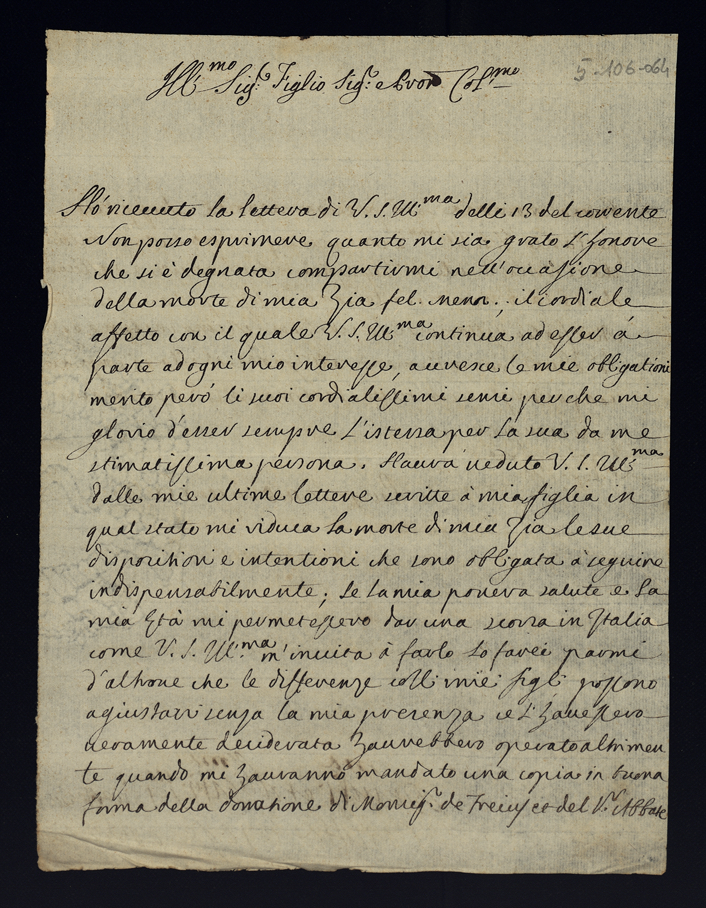 5-106-064
Ill.mo Sig.r Figlio Sig.r e Pron Col.mo
Hó riceuuto la lettera di V. S. Ill.ma delli 13 del corrente
Non posso esprimere quanto mi sia grato l'honore
che si è degnata compartirmi nell'occasione
della morte di mia Zia fel. memor.; il cordiale
affetto con il quale V. S. Ill.ma continua ad esser á
parte ad ogni mio interesse, accresce le mie obligationi
merito peró li suoi cordialissimi sensi perche mi
glorio d'esser sempre l'istessa per la sua da me
stimatissima persona. Haurá ueduto V. S. Ill.ma
dalle mie ultime lettere scritte á mia figlia in
qual stato mi riduca la morte di mia Zia le sue
dispositioni e intentioni che sono obligata á seguire
indispensabilmente; se la mia pouera salute e la
mia Etá mi permetessero dar una scorsa in Italia
come V. S. Ill.ma m'inuita á farlo lo farei parmi
d'altrone che le differenze colli miei figli possono
agiustarsi senza la mia presenza se l'hauessero
ueramente desiderata haurebbero operato altrimen
te quando mi hauranno mandato una copia in buona
forma della donatione di Monsig.r de et del Abbate